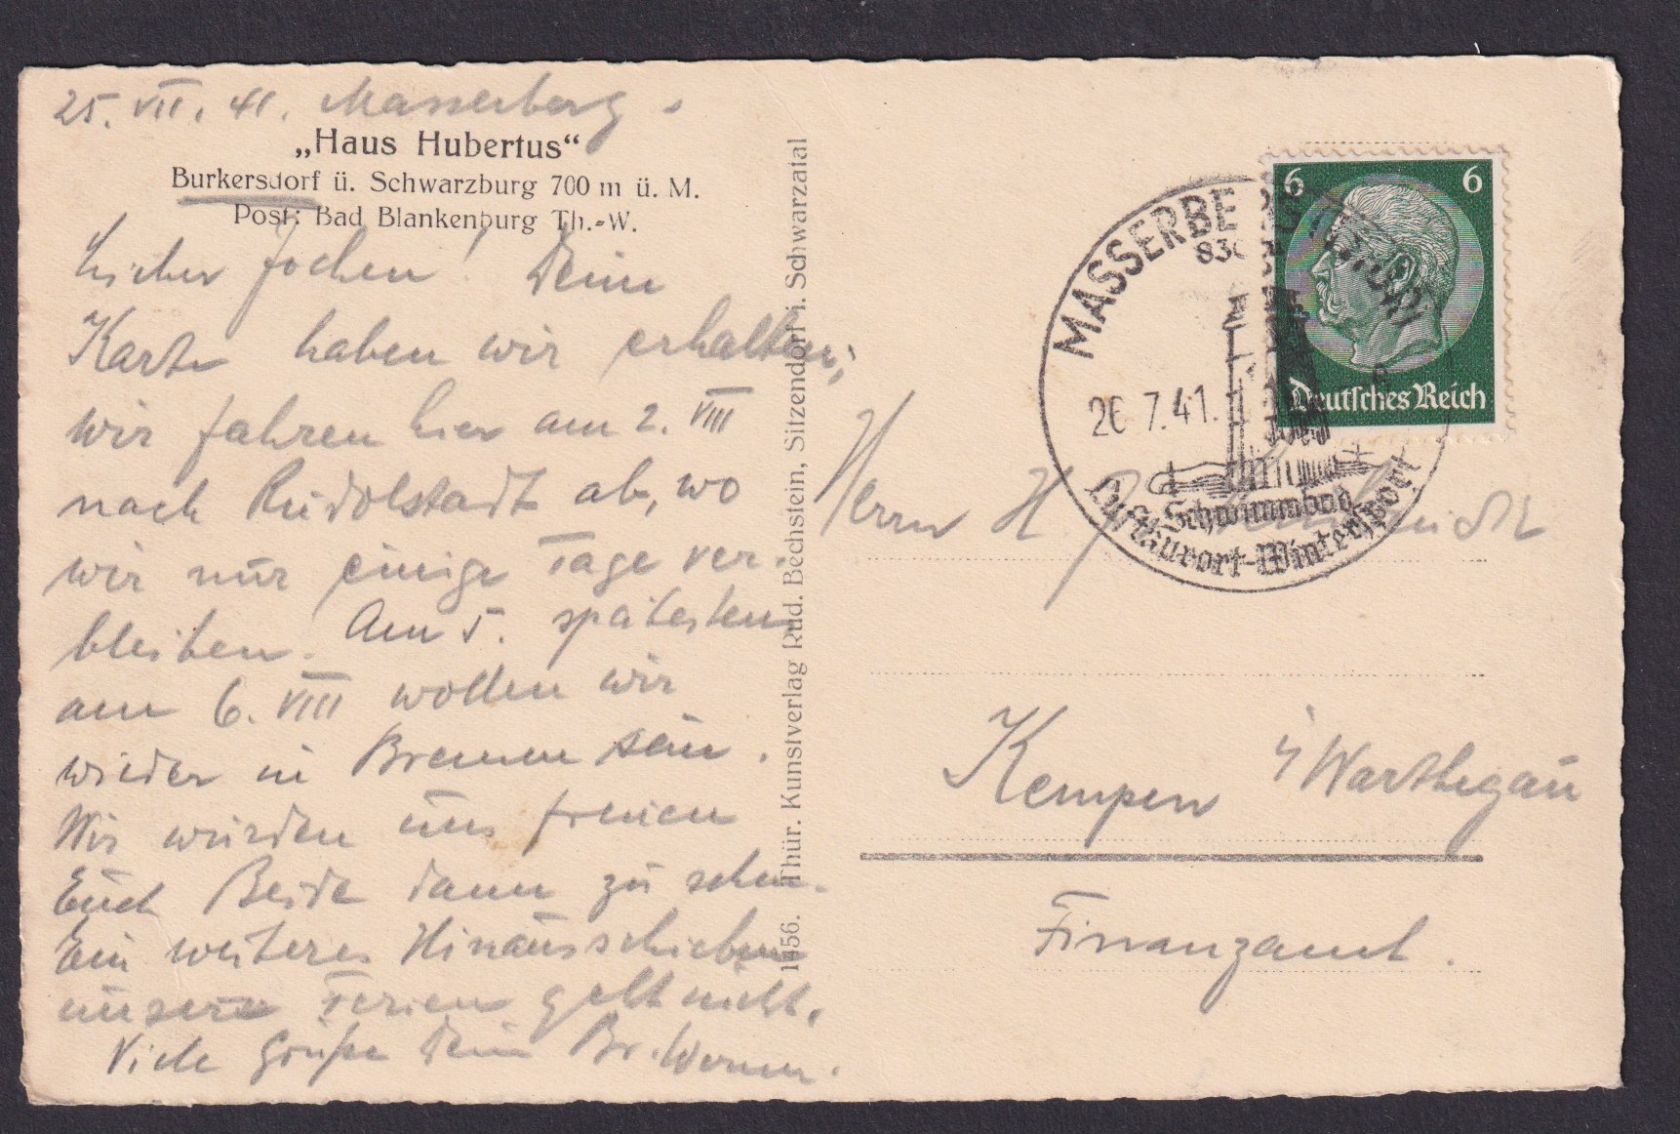 25. VII. 41. Masserberg.
„Haus Hubertus“
Burkersdorf ü. Schwarzburg 700 m ü. M.
Post: Bad Blankenburg Th.-W.
Lieber Jochen! Deine
Karte haben wir erhalten;
wir fahren hier am 2. VIII
nach Rudolstadt ab, wo
wir nur einige Tage ver-
bleiben. Am 5. spätestens
am 6. VIII wollen wir
wieder in Bremen sein.
Wir würden uns freuen
Euch Beide dann zu sehen.
Ein weiteres Hinausschieben
unserer Ferien geht nicht.
Viele Grüße Dein Br. Werner.
1456. Thür. Kunstverlag Rud. Bechstein, Sitzendorf i. Schwarzatal
6 6
Deutsches Reich
MASSERBERG
830
26.7.41.
Schwimmbad
Luftkurort-Wintersport
Herrn H. J.
Kempen i/Warthegau
Finanzamt.